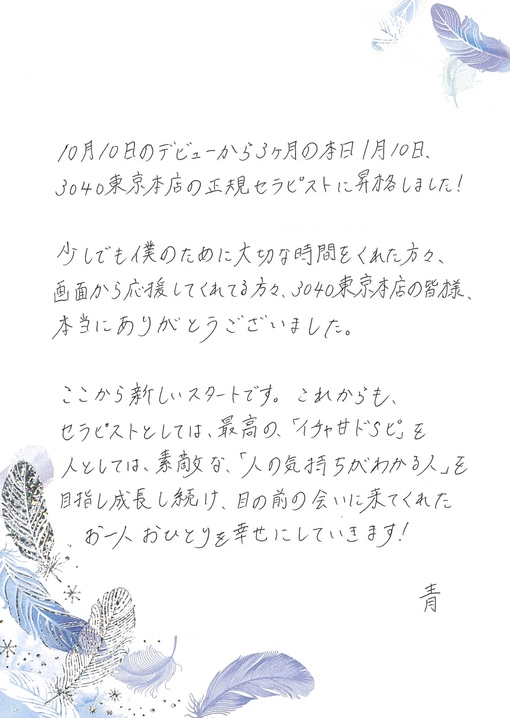 10月10日のデビューから3ヶ月の本日1月10日、
3040東京本店の正規セラピストに昇格しました!
少しでも僕のために大切な時間をくれた方々、
画面から応援してくれてる方々、3040東京本店の皆様、
本当にありがとうございました。
ここから新しいスタートです。これからも、
セラピストとしては、最高の、「イチャ甘ドSピ」を
人としては、素敵な、「人の気持ちがわかる人」を
目指し成長し続け、目の前の会いに来てくれた
お一人おひとりを幸せにしていきます!
青